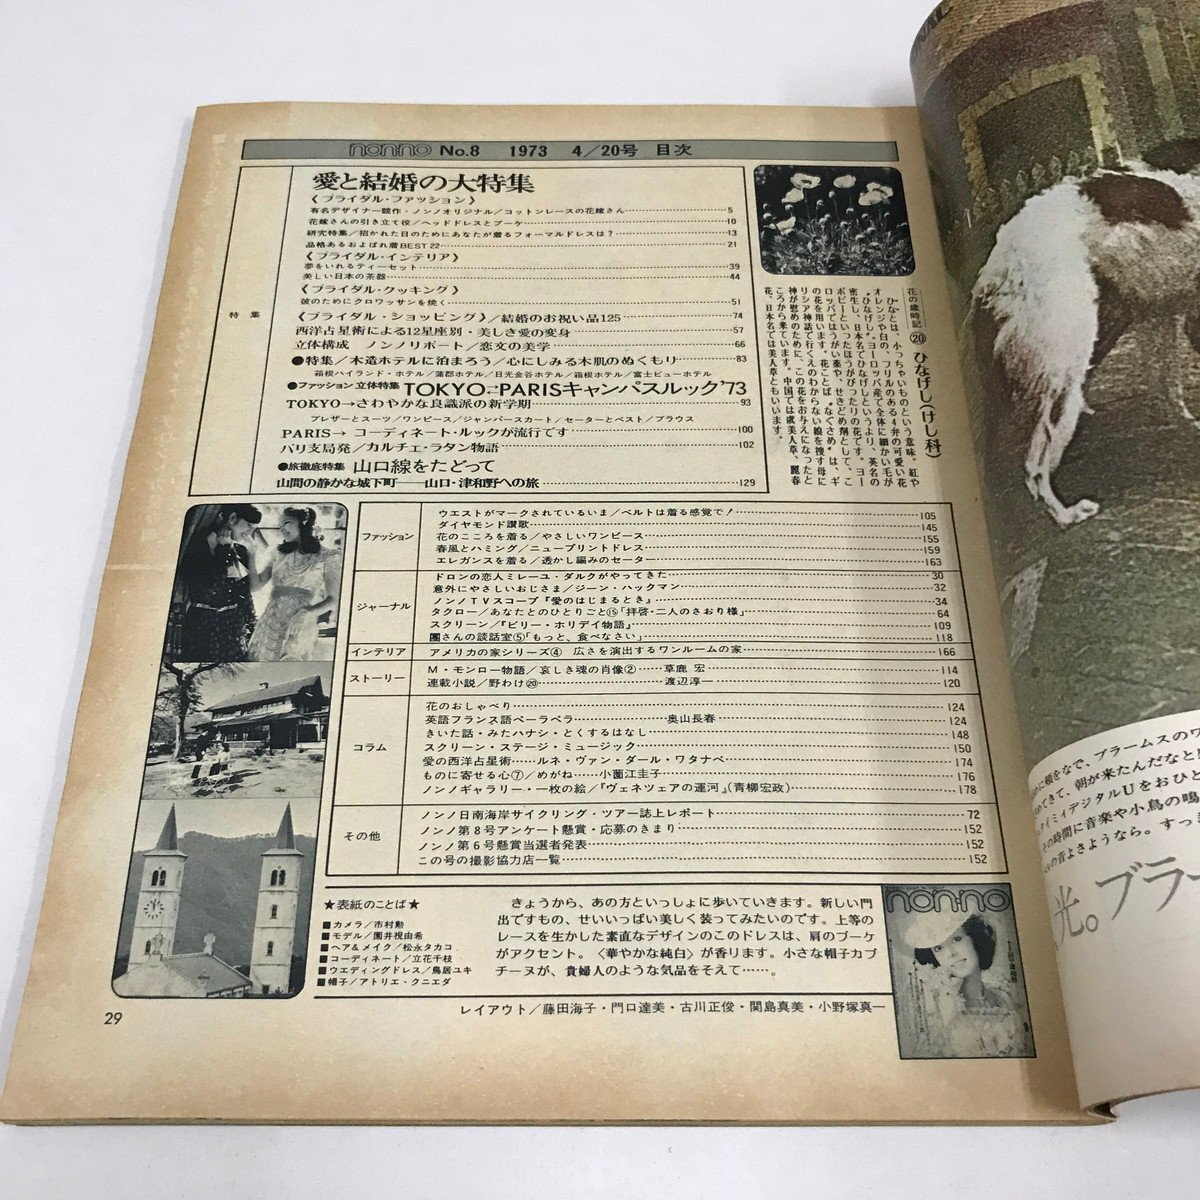 non・no No.8 1973 4/20号 目次
特集
愛と結婚の大特集
《ブライダル・ファッション》
有名デザイナー競作・ノンノオリジナル/コットンレースの花嫁さん 5
花嫁さんの引き立て役/ヘッドドレスとブーケ 10
研究特集/招かれた日のためにあなたが着るフォーマルドレスは? 13
品格あるおよばれ着BEST22 21
《ブライダル・インテリア》
夢をいれるティーセット 39
美しい日本の茶器 44
《ブライダル・クッキング》
彼のためにクロワッサンを焼く 51
《ブライダル・ショッピング》/結婚のお祝い品125 74
西洋占星術による12星座別・美しき愛の変身 57
立体構成 ノンノリポート/恋文の美学 66
●特集/木造ホテルに泊まろう/心にしみる木肌のぬくもり 83
箱根ハイランド・ホテル/蒲郡ホテル/日光金谷ホテル/箱根ホテル/富士ビューホテル
●ファッション立体特集 TOKYO⇄PARISキャンパスルック'73
TOKYO→さわやかな良識派の新学期 93
ブレザーとスーツ/ワンピース/ジャンパースカート/セーターとベスト/ブラウス
PARIS→ コーディネート・ルックが流行です 100
パリ支局発/カルチェ・ラタン物語 102
●旅徹底特集 山口線をたどって
山間の静かな城下町――山口・津和野への旅 129
花の歳時記 ⑳ ひなげし(けし科)
ひなとは、小っちゃいものという意味。紅や
オレンジや白の、フリルのある4弁の可愛い花
"ひなげし"。ヨーロッパ産で全体に細かい毛が
密生し、日本名でひなげしというより、英名の
ポピーといったほうがぴったりの花です。ヨー
ロッパではうがい薬や、せきどめ剤として、こ
の花を用います。花ことば"なぐさめ"は、ギ
リシア神話で行くえのわからない娘を捜す母に
神が慰めのために、この花をお与えになったと
ころから来ています。中国では虞美人草、麗春
花、日本名では美人草ともいいます。
ファッション
ウエストがマークされているいま/ベルトは着る感覚で! 105
ダイヤモンド讃歌 145
花のこころを着る/やさしいワンピース 155
春風とハミング/ニュープリントドレス 159
エレガンスを着る/透かし編みのセーター 163
ジャーナル
ドロンの恋人ミレーユ・ダルクがやってきた 30
意外にやさしいおじさま/ジーン・ハックマン 32
ノンノTVスコープ『愛のはじまるとき』 34
タクロー/あなたとのひとりごと⑮「拝啓・二人のさおり様」 64
スクリーン/『ビリー・ホリデイ物語』 109
團さんの談話室⑤「もっと、食べなさい」 118
インテリア アメリカの家シリーズ④ 広さを演出するワンルームの家 166
ストーリー
M・モンロー物語/哀しき魂の肖像② 草鹿 宏 114
連載小説/野わけ⑳ 渡辺淳一 120
コラム
花のおしゃべり 124
英語フランス語ペーラペラ 奥山長春 124
きいた話・みたハナシ・とくするはなし 148
スクリーン・ステージ・ミュージック 150
愛の西洋占星術 ルネ・ヴァン・ダール・ワタナベ 174
ものに寄せる心⑦/めがね 小薗江圭子 176
ノンノギャラリー・一枚の絵/『ヴェネツェアの運河』(青柳宏政) 178
その他
ノンノ日南海岸サイクリング・ツアー誌上レポート 72
ノンノ第8号アンケート懸賞・応募のきまり 152
ノンノ第6号懸賞当選者発表 152
この号の撮影協力店一覧 152
★表紙のことば★
■カメラ/市村勲
■モデル/園井視由希
■ヘア&メイク/松永タカコ
■コーディネート/立花千枝
■ウエディングドレス/鳥居ユキ
■帽子/アトリエ・クニエダ
きょうから、あの方といっしょに歩いていきます。新しい門
出ですもの、せいいっぱい美しく装ってみたいのです。上等の
レースを生かした素直なデザインのこのドレスは、肩のブーケ
がアクセント。〈華やかな純白〉が香ります。小さな帽子カプ
チーヌが、貴婦人のような気品をそえて……。
non・no
レイアウト/藤田海子・門口達美・古川正俊・関島真美・小野塚真一
29
に頬をなで、ブラームスのワ
めてきて、朝が来たんだなと
タイミィデジタルUをおひと
の時間に音楽や小鳥の鳴
の音よさようなら。すっ
光。ブラー